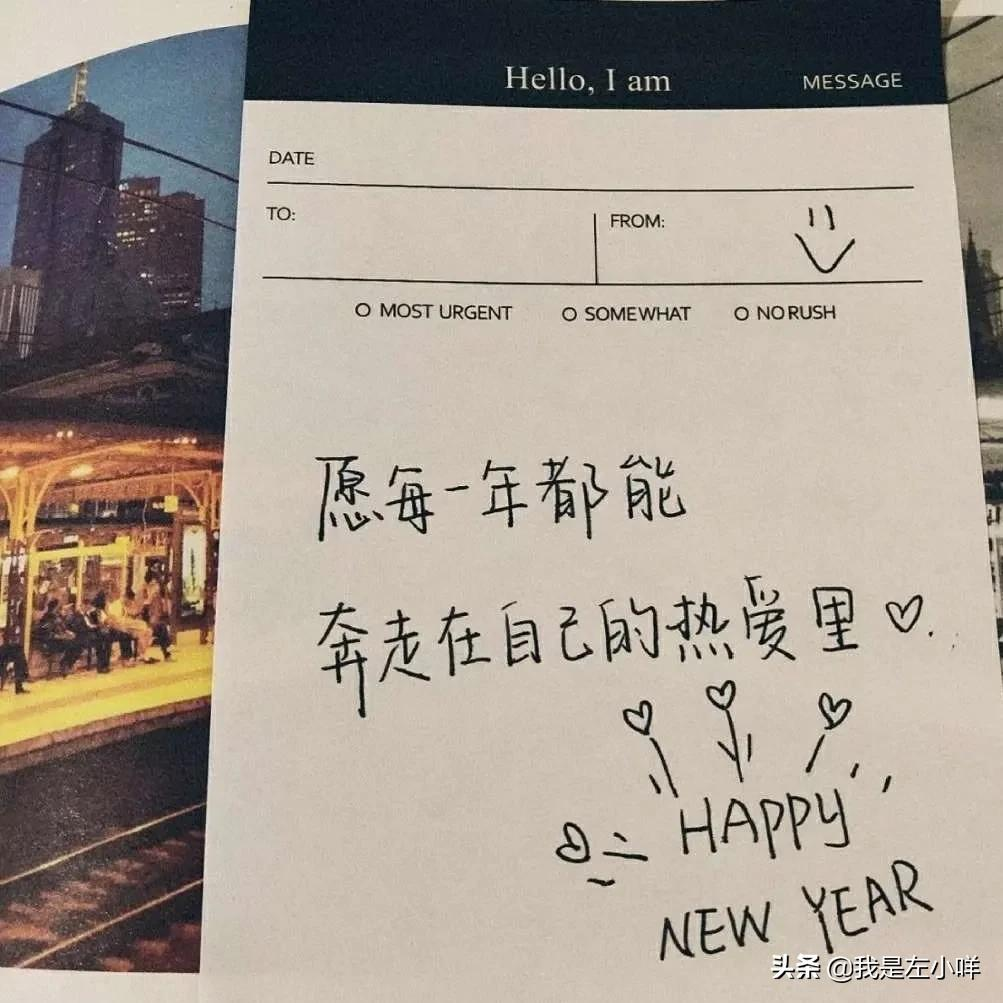 Hello, I am MESSAGE
DATE
TO: FROM:
O MOST URGENT O SOMEWHAT O NO RUSH
愿每一年都能
奔走在自己的热爱里♡.
HAPPY
NEW YEAR
头条 @我是左小咩